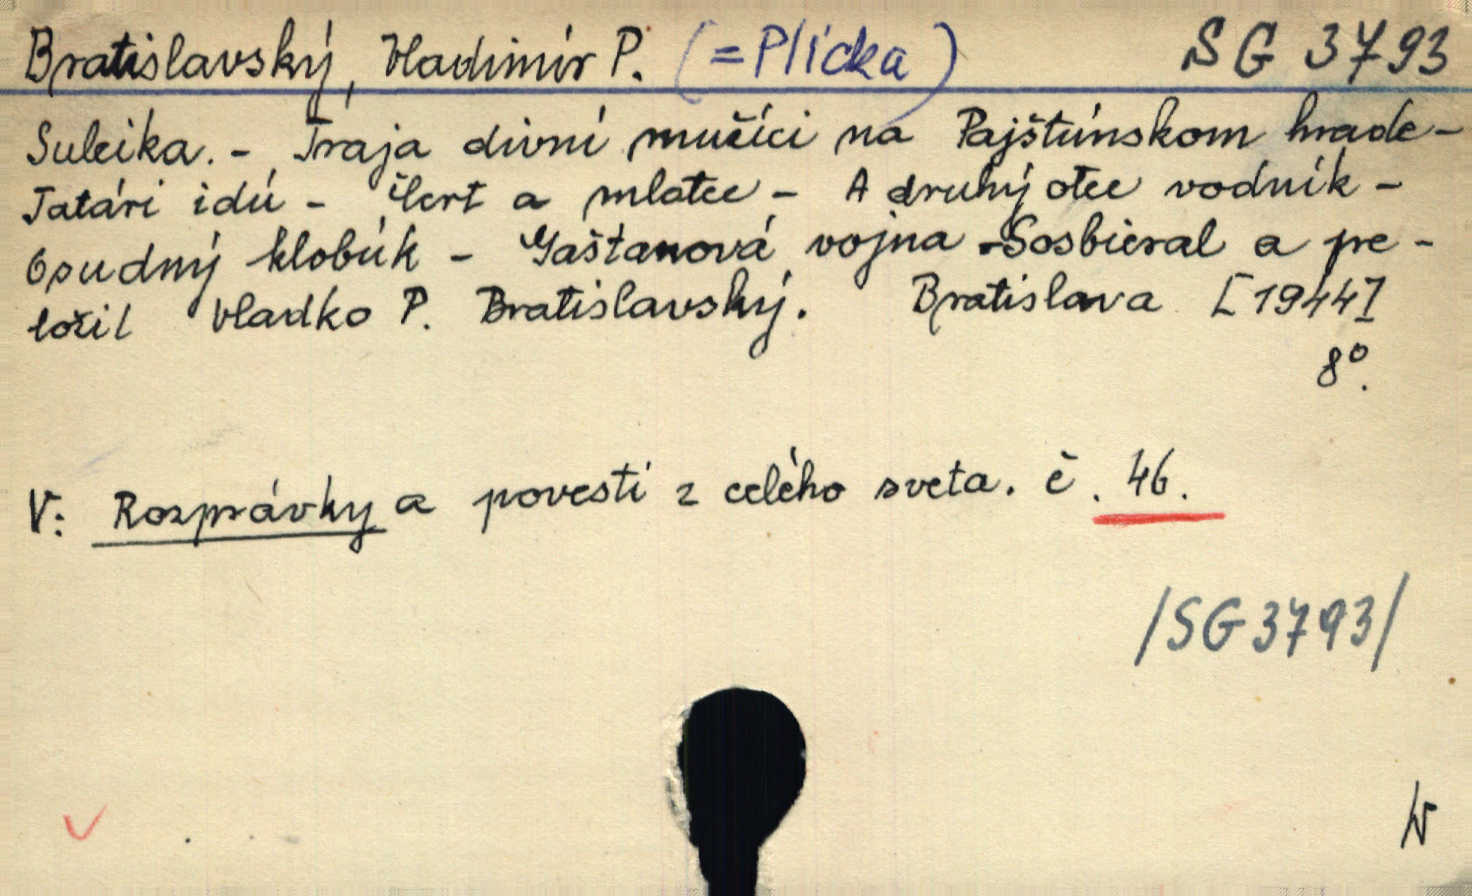 Bratislavský, Vladimír P. (=Plicka) SG 3793
Suleika. - Traja divní mučíci na Pajštúnskom hrade -
Tatári idú - Čert a mlatec - A druhý otec vodník -
Osudný klobúk - Gaštanová vojna - Sosbieral a pre-
ložil Vladko P. Bratislavský. Bratislava [1944]
8°.
V: Rozprávky a povesti z celého sveta. č. 46.
/SG3793/